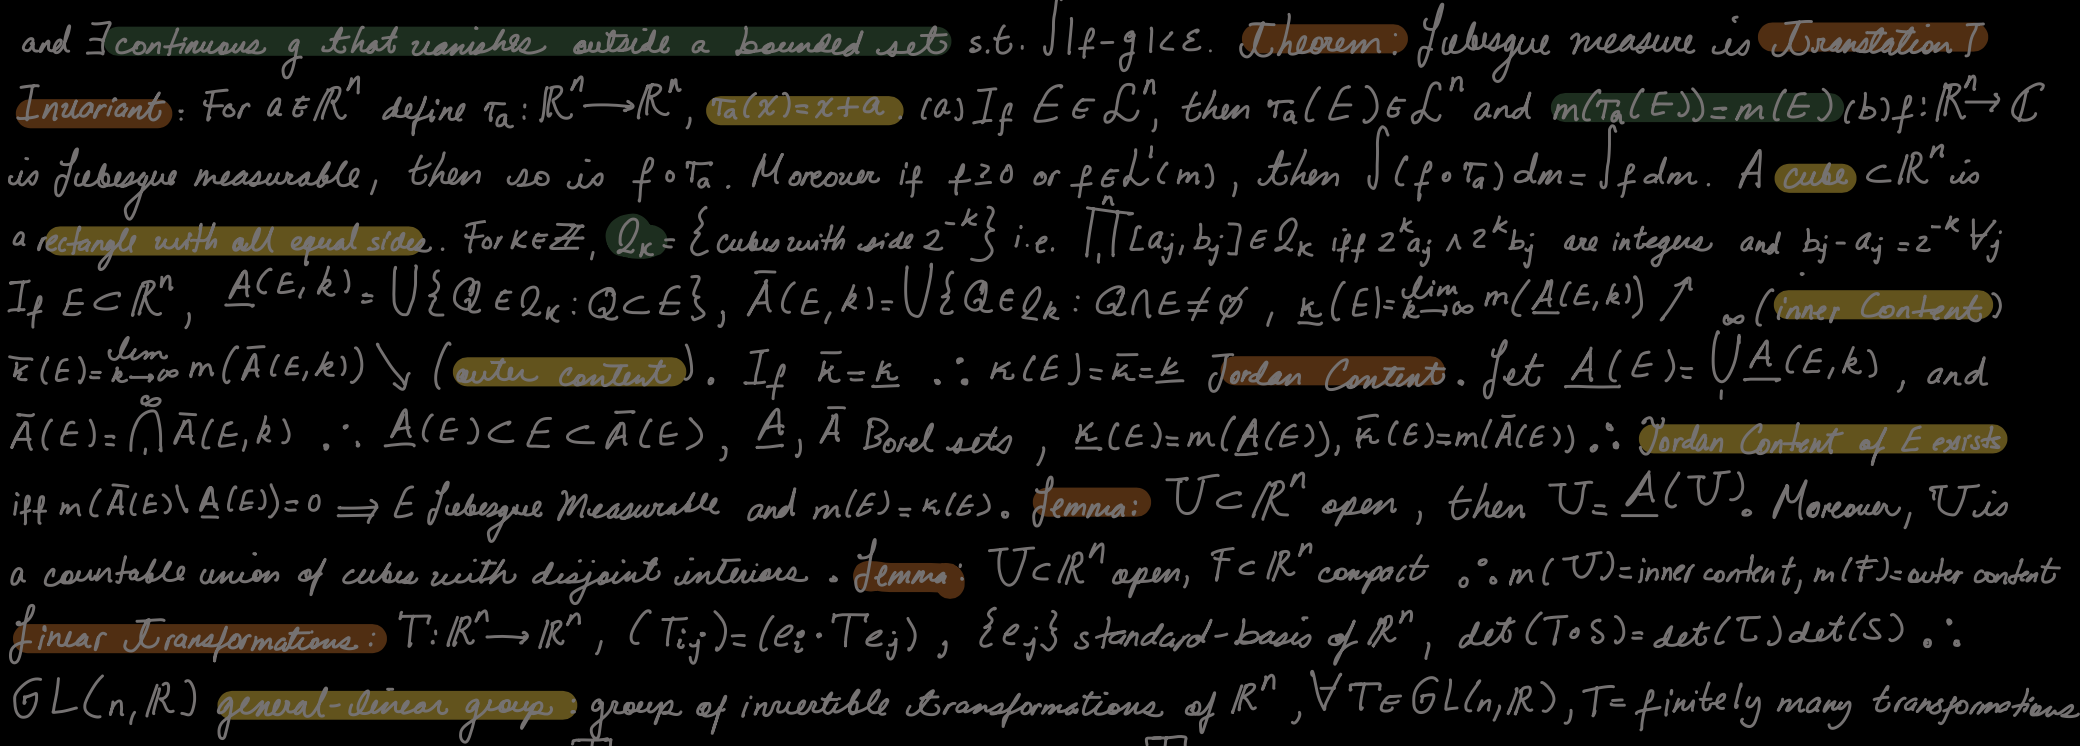 and ∃ continuous g that vanishes outside a bounded set s.t. ∫|f-g|<ε. Theorem: Lebesgue measure is Translation
Invariant: For a∈ℝⁿ define τₐ: ℝⁿ→ℝⁿ, τₐ(x)=x+a. (a) If E∈ℒⁿ, then τₐ(E)∈ℒⁿ and m(τₐ(E))=m(E) (b) f:ℝⁿ→ℂ
is Lebesgue measurable, then so is f∘τₐ. Moreover if f≥0 or f∈L¹(m), then ∫(f∘τₐ)dm=∫f dm. A cube ⊂ℝⁿ is
a rectangle with all equal sides. For k∈ℤ, Q_k={cubes with side 2^{-k}} i.e. ∏₁ⁿ[aⱼ,bⱼ]∈Q_k iff 2ᵏaⱼ ∧ 2ᵏbⱼ are integers and bⱼ-aⱼ=2^{-k} ∀ⱼ
If E⊂ℝⁿ, A̲(E,k)=⋃{Q∈Q_k:Q⊂E}, A̅(E,k)=⋃{Q∈Q_k:Q∩E≠∅, κ̲(E)=lim_{k→∞} m(A̲(E,k)) ↗ (inner content)
κ̅(E)=lim_{k→∞} m(A̅(E,k)) ↘ (outer content). If κ̅=κ̲ ∴ κ(E)=κ̅=κ̲ Jordan Content. Let A̲(E)=⋃₁^∞ A̲(E,k), and
A̅(E)=⋂₁^∞ A̅(E,k) ∴ A̲(E)⊂E⊂A̅(E), A̲, A̅ Borel sets, κ̲(E)=m(A̲(E)), κ̅(E)=m(A̅(E)) ∴ Jordan Content of E exists
iff m(A̅(E)\A̲(E))=0 ⟹ E Lebesgue Measurable and m(E)=κ(E). Lemma: U⊂ℝⁿ open, then U=A̲(U). Moreover, U is
a countable union of cubes with disjoint interiors. Lemma: U⊂ℝⁿ open, F⊂ℝⁿ compact ∴ m(U)=inner content, m(F)=outer content
Linear Transformations: T:ℝⁿ→ℝⁿ, (Tᵢⱼ)=(eᵢ·Teⱼ), {eⱼ} standard-basis of ℝⁿ, det(T∘S)=det(T)det(S) ∴
GL(n,ℝ) general-linear group: group of invertible transformations of ℝⁿ, ∀T∈GL(n,ℝ), T=finitely many transformations